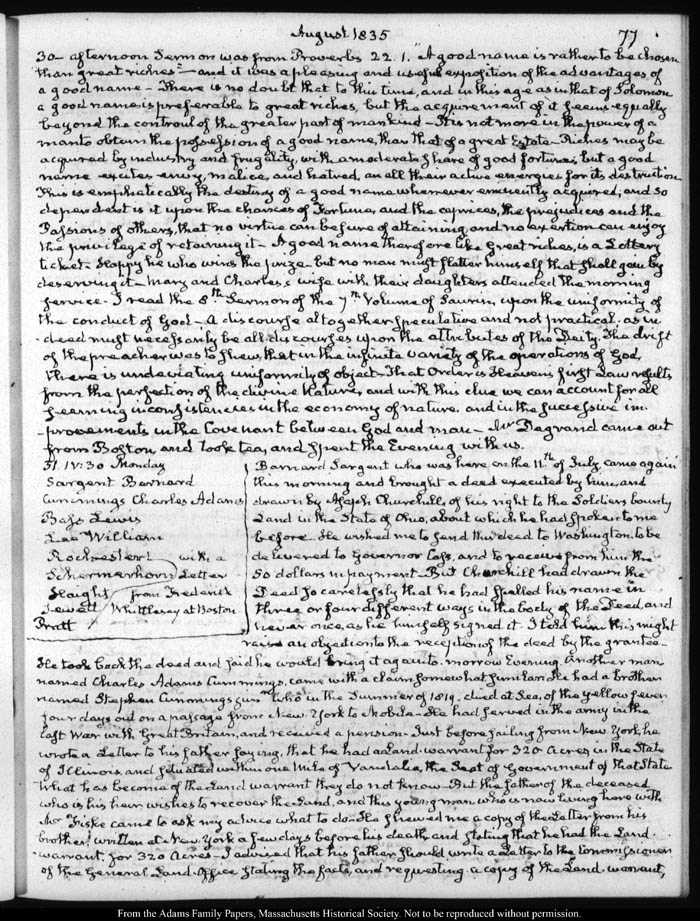 August 1835
77
30— afternoon Sermon was from Proverbs 22. 1. "A good name is rather to be chosen
than great riches"— and it was a pleasing and useful exposition of the advantages of
a good name— There is no doubt that to this time, and in this age as in that of Solomon
a good name is preferable to great riches, but the acquirement of it seems equally
beyond the controul of the greater part of mankind— It is not more in the power of a
man to obtain the possession of a good name, than that of a great Estate— Riches may be
acquired by industry and frugality, with a moderate share of good fortune, but a good
name excites envy, malice, and hatred, in all their active energies for its destruction
This is emphatically the destiny of a good name whenever eminently acquired, and so
dependent is it upon the chances of Fortune, and the caprices, the prejudices and the
Passions of others, that no virtue can be sure of attaining, and no exertion can enjoy
the privilege of retaining it— A good name therefore like great riches, is a Lottery
ticket— Happy he who wins the prize— but no man must flatter himself that shall gain by
deserving it— Mary and Charles's wife with their daughters attended the morning
service— I read the 8th Sermon of the 7th Volume of Saurin, upon the uniformity of
the conduct of God— A discourse altogether speculative and not practical— as in
-deed must necessarily be all discourses upon the attributes of the Deity. The drift
of the preacher was to shew, that in the infinite variety of the operations of God,
there is undeviating uniformity of object— That Order is Heaven's first Law results
from the perfection of the divine Nature, and with this clue we can account for all
seeming inconsistencies in the economy of nature, and in the successive im-
-provements in the Covenant between God and man— Mr Degrand came out
from Boston, and took tea, and spent the Evening with us.
31. IV:30 Monday
Sargent Barnard
Cummings Charles Adams
Bass Lewis
Lee William
Rochester with a
Schermerhorn Letter
Slaight from Frederick
Jewett Whittlesey at Boston
Pratt
Barnard Sargent who was here on the 11th of July, came again
this morning and brought a deed executed by him, and
drawn by Asaph Churchill, of his right to the Soldiers bounty
Land in the State of Ohio, about which he had spoken to me
before— He wished me to send this deed to Washington, to be
delivered to Governor Cass, and to receive from him the
50 dollars in payment— But Churchill had drawn the
Deed so carelessly that he had spelled his name in
three or four different ways in the body of the Deed, and
never once, as he himself signed it. I told him this might
raise an objection to the reception of the deed by the grantee—
He took back the deed and said he would bring it again to-morrow Evening. Another man
named Charles Adams Cummings, came with a claim somewhat similar. He had a brother
named Stephen Cummings junr who in the Summer of 1819. died at Sea, of the yellow fever
four days out on a passage from New York to Mobile— He had served in the army in the
last War with Great Britain, and received a pension— Just before sailing from New York, he
wrote a Letter to his father saying, that he had a Land warrant for 320 Acres in the State
of Illinois, and situated within one Mile of Vandalia, the Seat of Government of that State
What has become of the Land warrant they do not know— But the father of the deceased
who is his heir wishes to recover the Land, and this young man who is now living here with
Mr Fiske came to ask my advice what to do— He shewed me a copy of the Letter from his
brother, written at New York a few days before his death, and stating that he had the Land
warrant, for 320 Acres— I advised that his father should write a Letter to the Commissioner
of the General Land Office stating the facts, and requesting a copy of the Land-warrant,
From the Adams Family Papers, Massachusetts Historical Society. Not to be reproduced without permission.